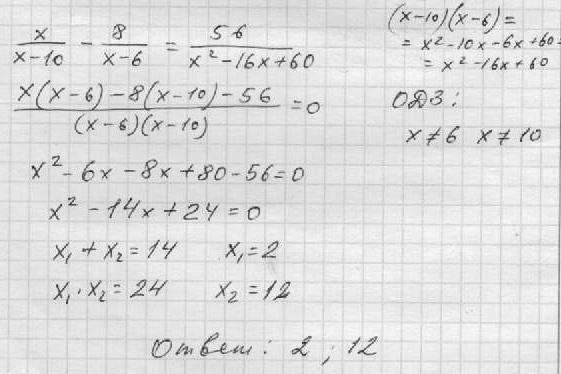 x/(x-10) - 8/(x-6) = 56/(x²-16x+60)
(x(x-6)-8(x-10)-56)/((x-6)(x-10)) = 0
x²-6x-8x+80-56=0
x²-14x+24=0
x₁+x₂=14 x₁=2
x₁·x₂=24 x₂=12
Ответ: 2 ; 12
(x-10)(x-6)=
= x²-10x-6x+60=
= x²-16x+60
ОДЗ:
x≠6 x≠10